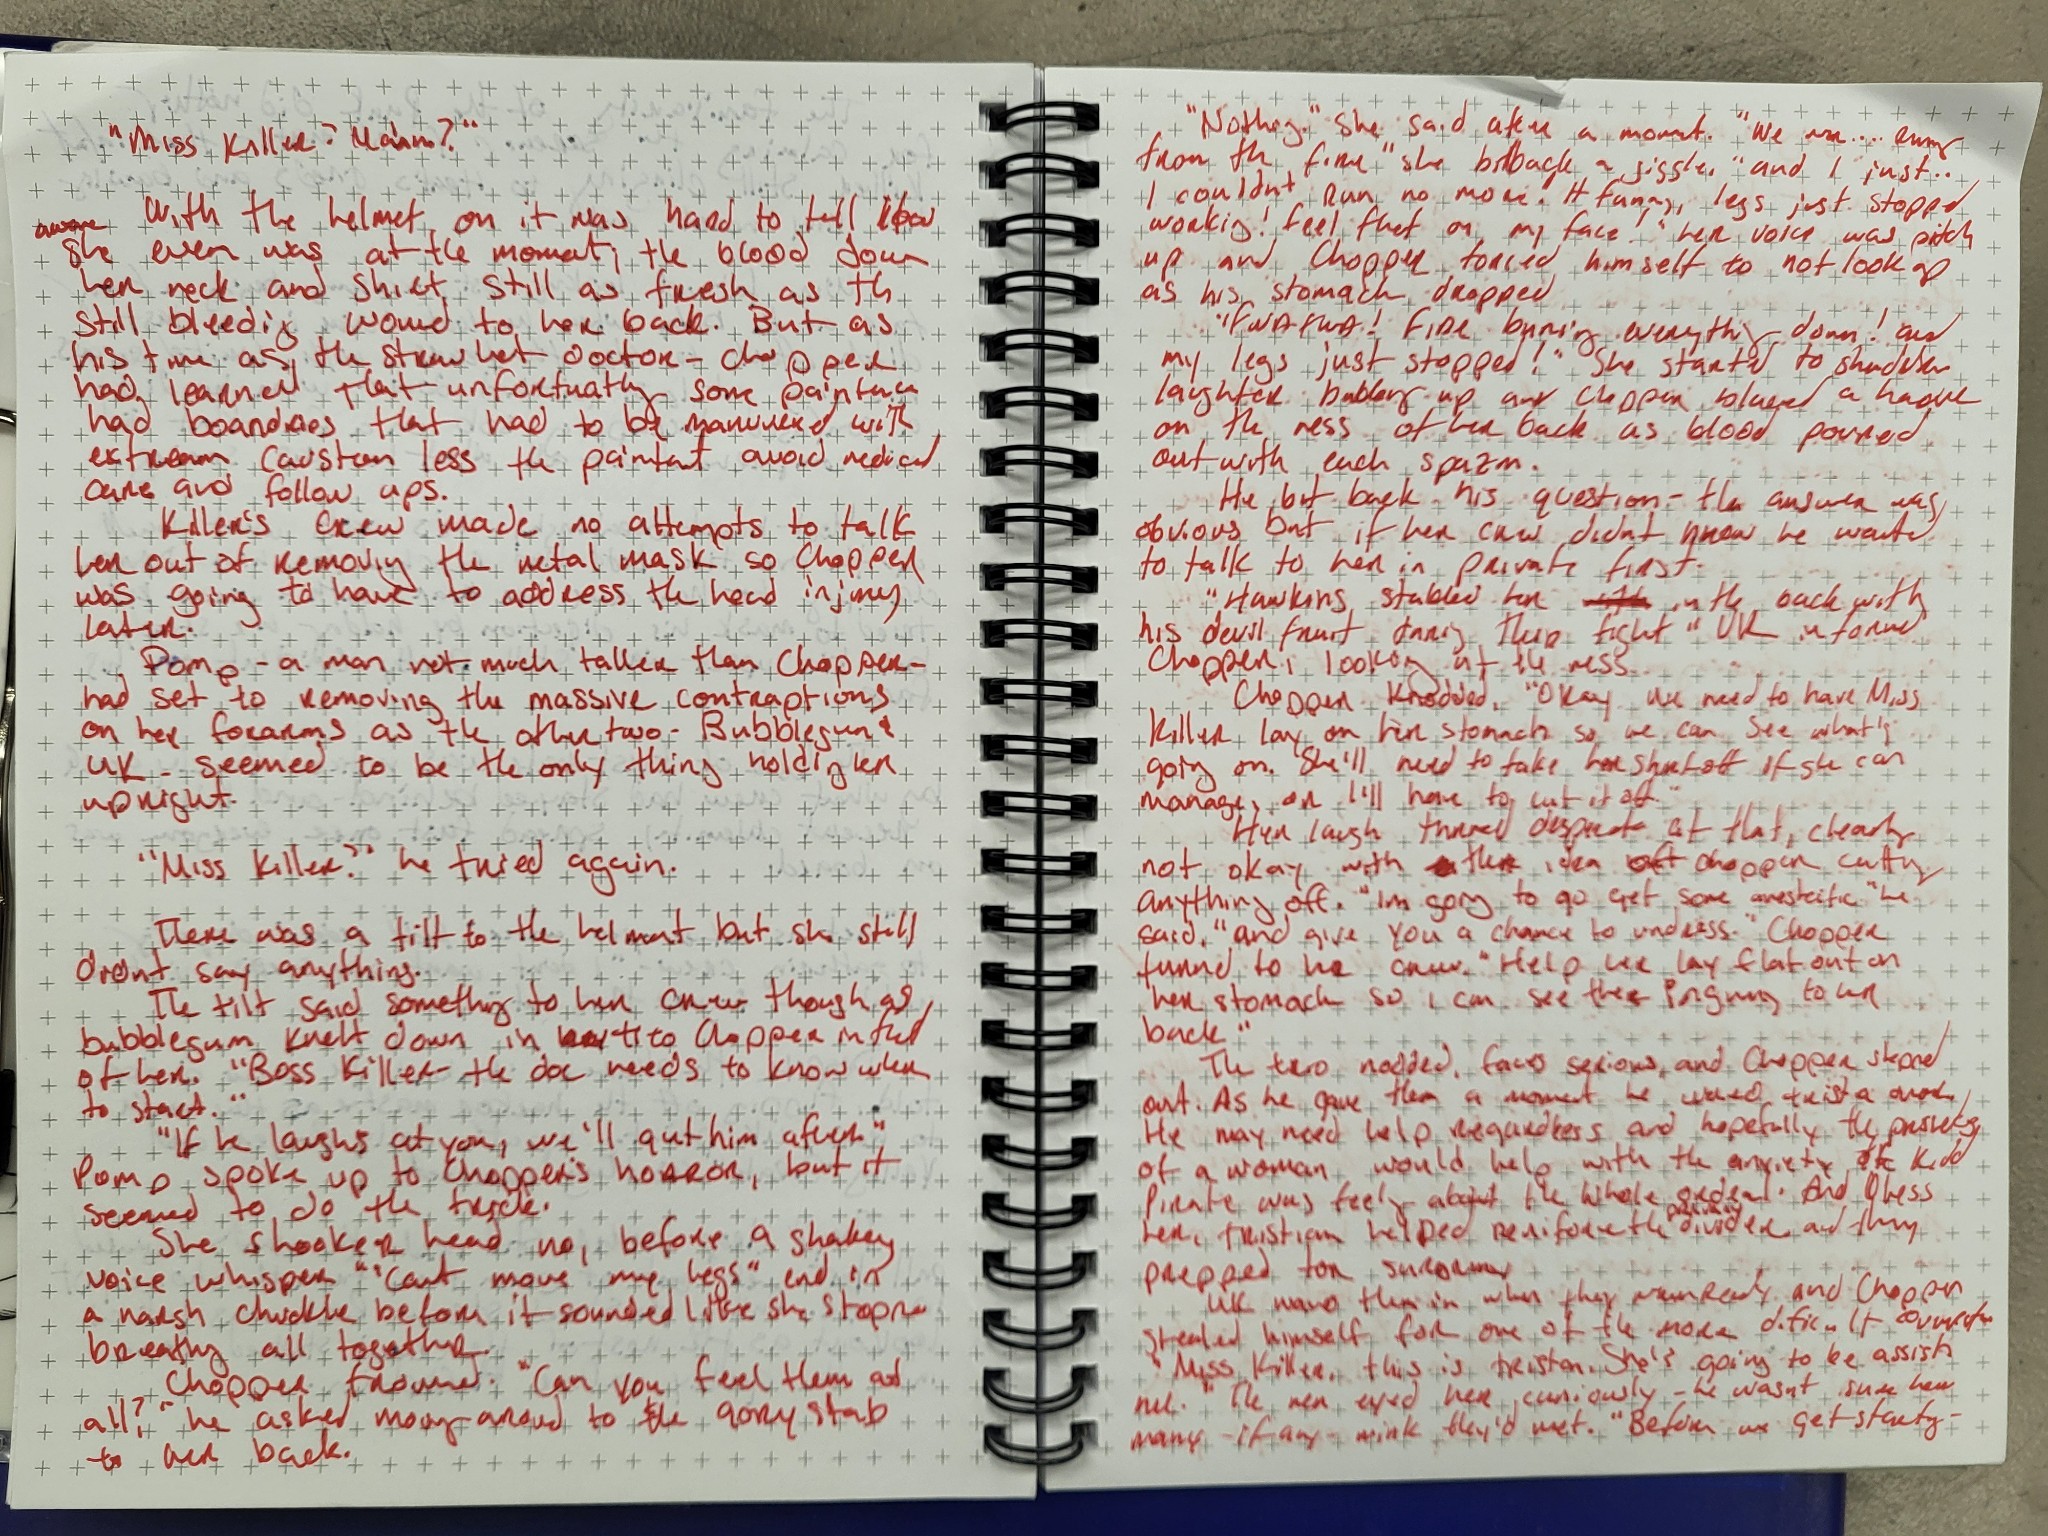 "Miss Killer? Ma'am?"
With the helmet on it was hard to tell how
aware
she even was at the moment; the blood down
her neck and shirt still as fresh as th
still bleedig wound to her back. But as
his time as the straw hat doctor - Chopper
had learned that unfortuatly some
had boandries that had to be manuvered with
extream less the avoid medical
care and follow ups.
Killer's crew made no attempts to talk
her out of removig the metal mask so Chopper
was going to have to address the head injury
later.
Pomp - a man not much taller than Chopper -
had set to removing the massive contraptions
on her forarms as the other two - Bubblegum &
UK - seemed to be the only thing holdig her
upright.
"Miss Killer?" he tried again.
There was a tilt to the helmat but she still
didnt say anything.
The tilt said something to her crew though as
bubblegum knelt down in to Chopper in frnt
of her. "Boss Killer - the doc needs to know wher
to start."
"If he laughs at you, we'll gut him after"
Pomp spoke up to Chopper's horror, but it
seemed to do the trick.
She shook er head no, before a shakey
voice whisper "Cant move my legs" end in
a harsh chuckle before it sounded like she stoppe
breathg all together.
Chopper frowned. "Can you feel them at
all?" he asked movg aroud to the gory stab
to her back.
"Nothing." she said after a momnt. "We wer... runng
from the fire" she bit back a giggle. "and I just..
I couldnt run no more. It funny, legs just stopped
workig! feel that on my face!" her voice was pitch
up and Chopper forced himself to not look up
as his stomach dropped
"FWAFWA! Fire burnig everything down! and
my legs just stopped!" She started to shudder
laughter bubblig up and Chopper a
on the mess of her back as blood poured
out with each spazm.
He bit back his question - the answer was
obvious but if her crew didnt know he wanted
to talk to her in private first.
"Hawkins stabbed her in the back with
his devil fruit durig fight" UK informd
Chopper, lookig at the mess.
Chopper knodded. "Okay we need to have Miss
Killer lay on her stomach so we can see what's
going on. She'll need to take her shirt off if she can
manage, or I'll have to cut it off."
Her laugh turned desperate at that, clearly
not okay with the idea of Chopper cuttig
anything off. "Im goig to go get some anesteitic" he
said, "and give you a chance to undress." Chopper
turnd to her crew. "Help her lay flat out on
her stomach so I can see the injury to her
back"
The two nodded, faces serious, and Chopper stepped
out. As he gave them a moment he waved trista over.
He may need help regardless and hopefully the presenc
of a woman would help with the anxiety the Kidd
Pirate was feelg about the whole ordeal. And bless
privacy
her, tristian helped reniforce the divider and they
prepped for
UK wavd them in when they were ready and Chopper
stealed himself for one of the more dificult
"Miss Killer, this is tristan. She's going to be assisti
me." The men eyed her curiously - he wasnt sure how
many - if any - mink they'd met. "Before we get startg -